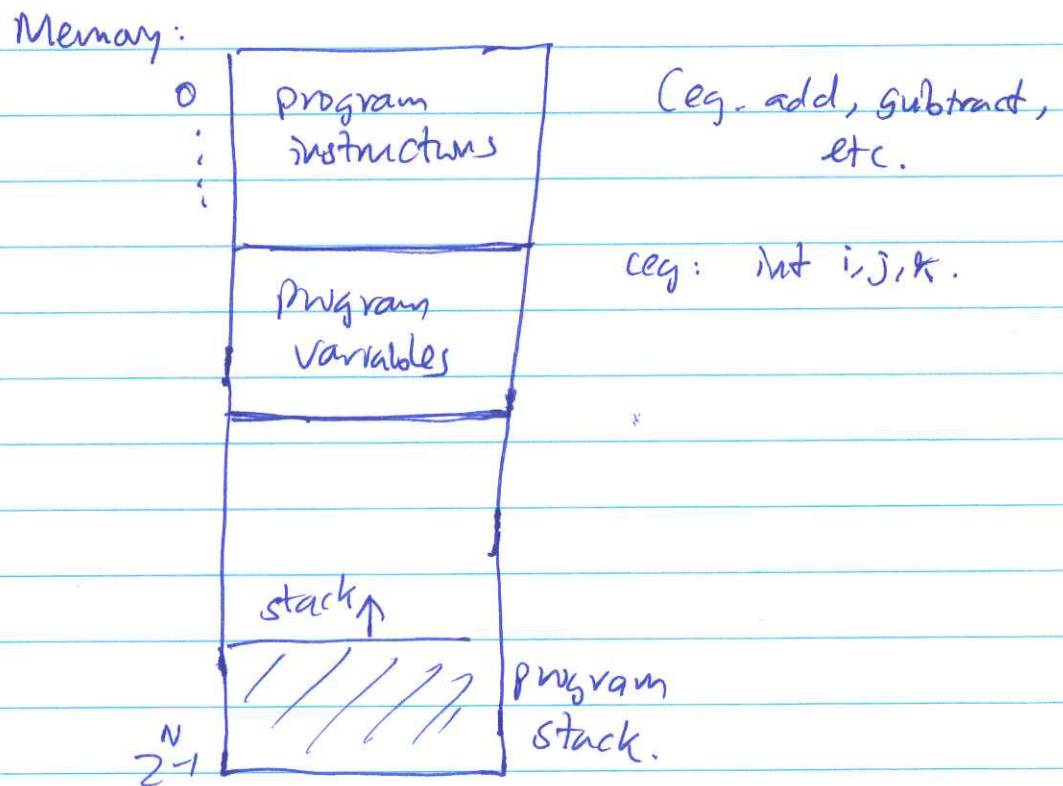 Memory:
0
program
instructions
(eg. add, subtract,
etc.
program
variables
(eg: int i, j, k.
stack ↑
program
stack.
2^N-1